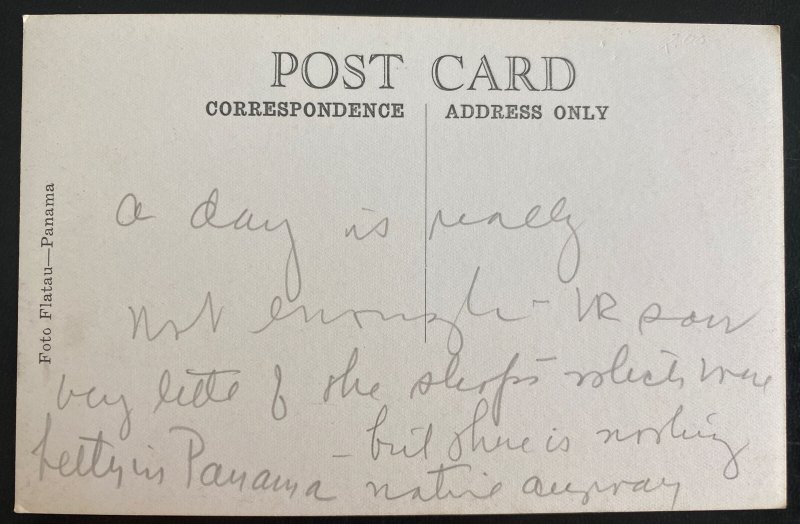 POST CARD
CORRESPONDENCE ADDRESS ONLY
Foto Flatau—Panama
a day is really
not enough - saw
very little of the shops which were
better in Panama - but there is nothing
native anyway